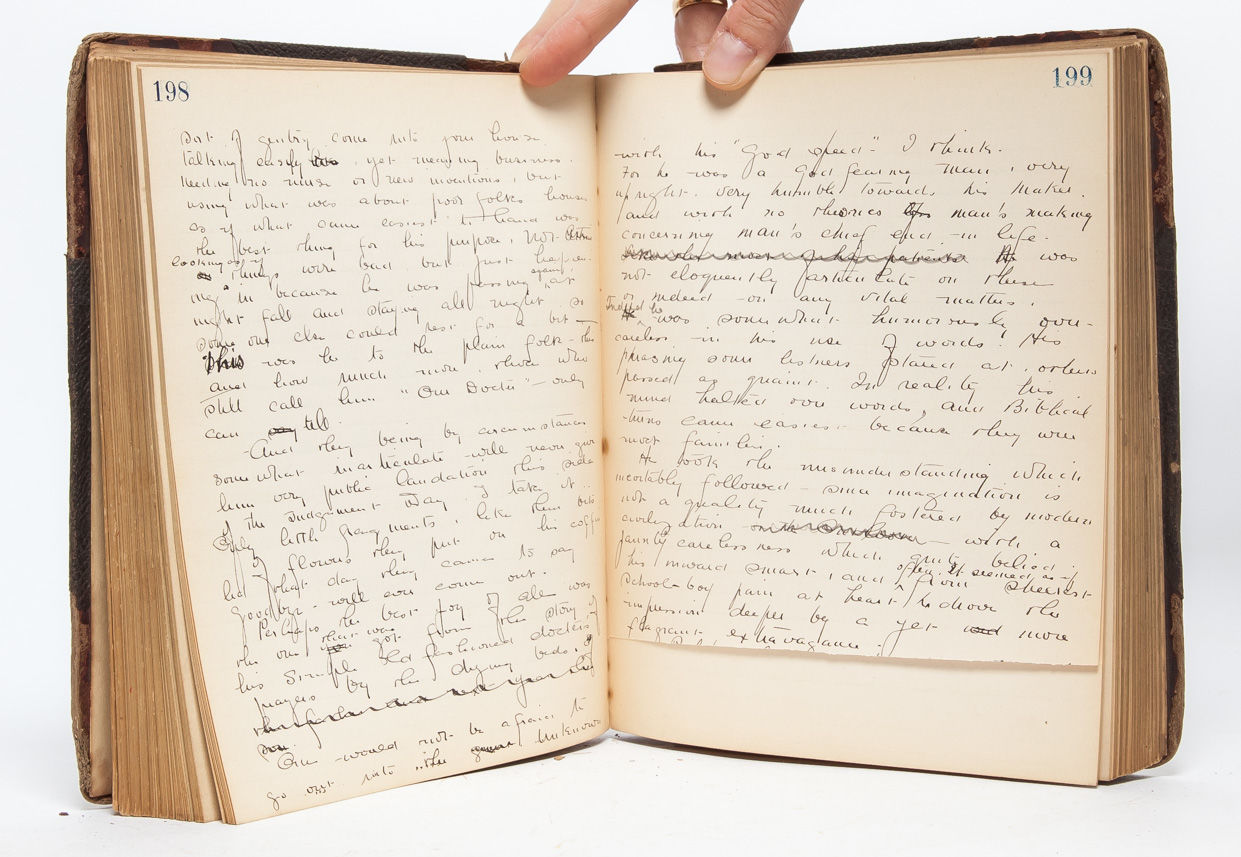 198
sort of gentry come into your house
talking easily, yet meaning business.
needing no nurse or new inventions, but
using what was about poor folks houses
so if what came easiest to hand was
the best thing for his purpose, not
looking as if
things were bad, but just happen-
ing in because he was passing at
again.
night fall and staying all night so
some one else could rest for a bit —
this was he to the plain folk - this
and how much more, those who
still call him "Our Doctor" - only
can tell.
And they being by circumstances
somewhat inarticulate will never give
him any public laudation this side
of the Judgement Day. I take it.
Only little fragments, like them bits
of flowers they put on his coffin
the day they came to say
Goodbye - will ever come out.
Perhaps the best story of all was
that was
the one got from the story of
his simple old fashioned doctor's
prayers by the dying beds.
One would not be afraid to
go out into the Unknown
199
with his "God speed" - I think.
For he was a God fearing man, very
upright. Very humble towards his Maker.
and with no theories man's making
concerning man's chief end in life.
He was
not eloquently articulate on these
or indeed on any vital matters.
Indeed he
was somewhat humorously over-
careless in his use of words. His
phrasing some listeners started at, others
passed as quaint. In reality this
mind halted over words, and Biblical
terms came easiest because they were
most familiar.
He took the misunderstanding which
inevitably followed - since imagination is
not a quality much fostered by modern
civilization - with a
jaunty carelessness which quite belied
his inward smart, and from sheerest
often, it seemed, as if
school-boy pain at heart he drove the
impression deeper by a yet more
flagrant extravagance.